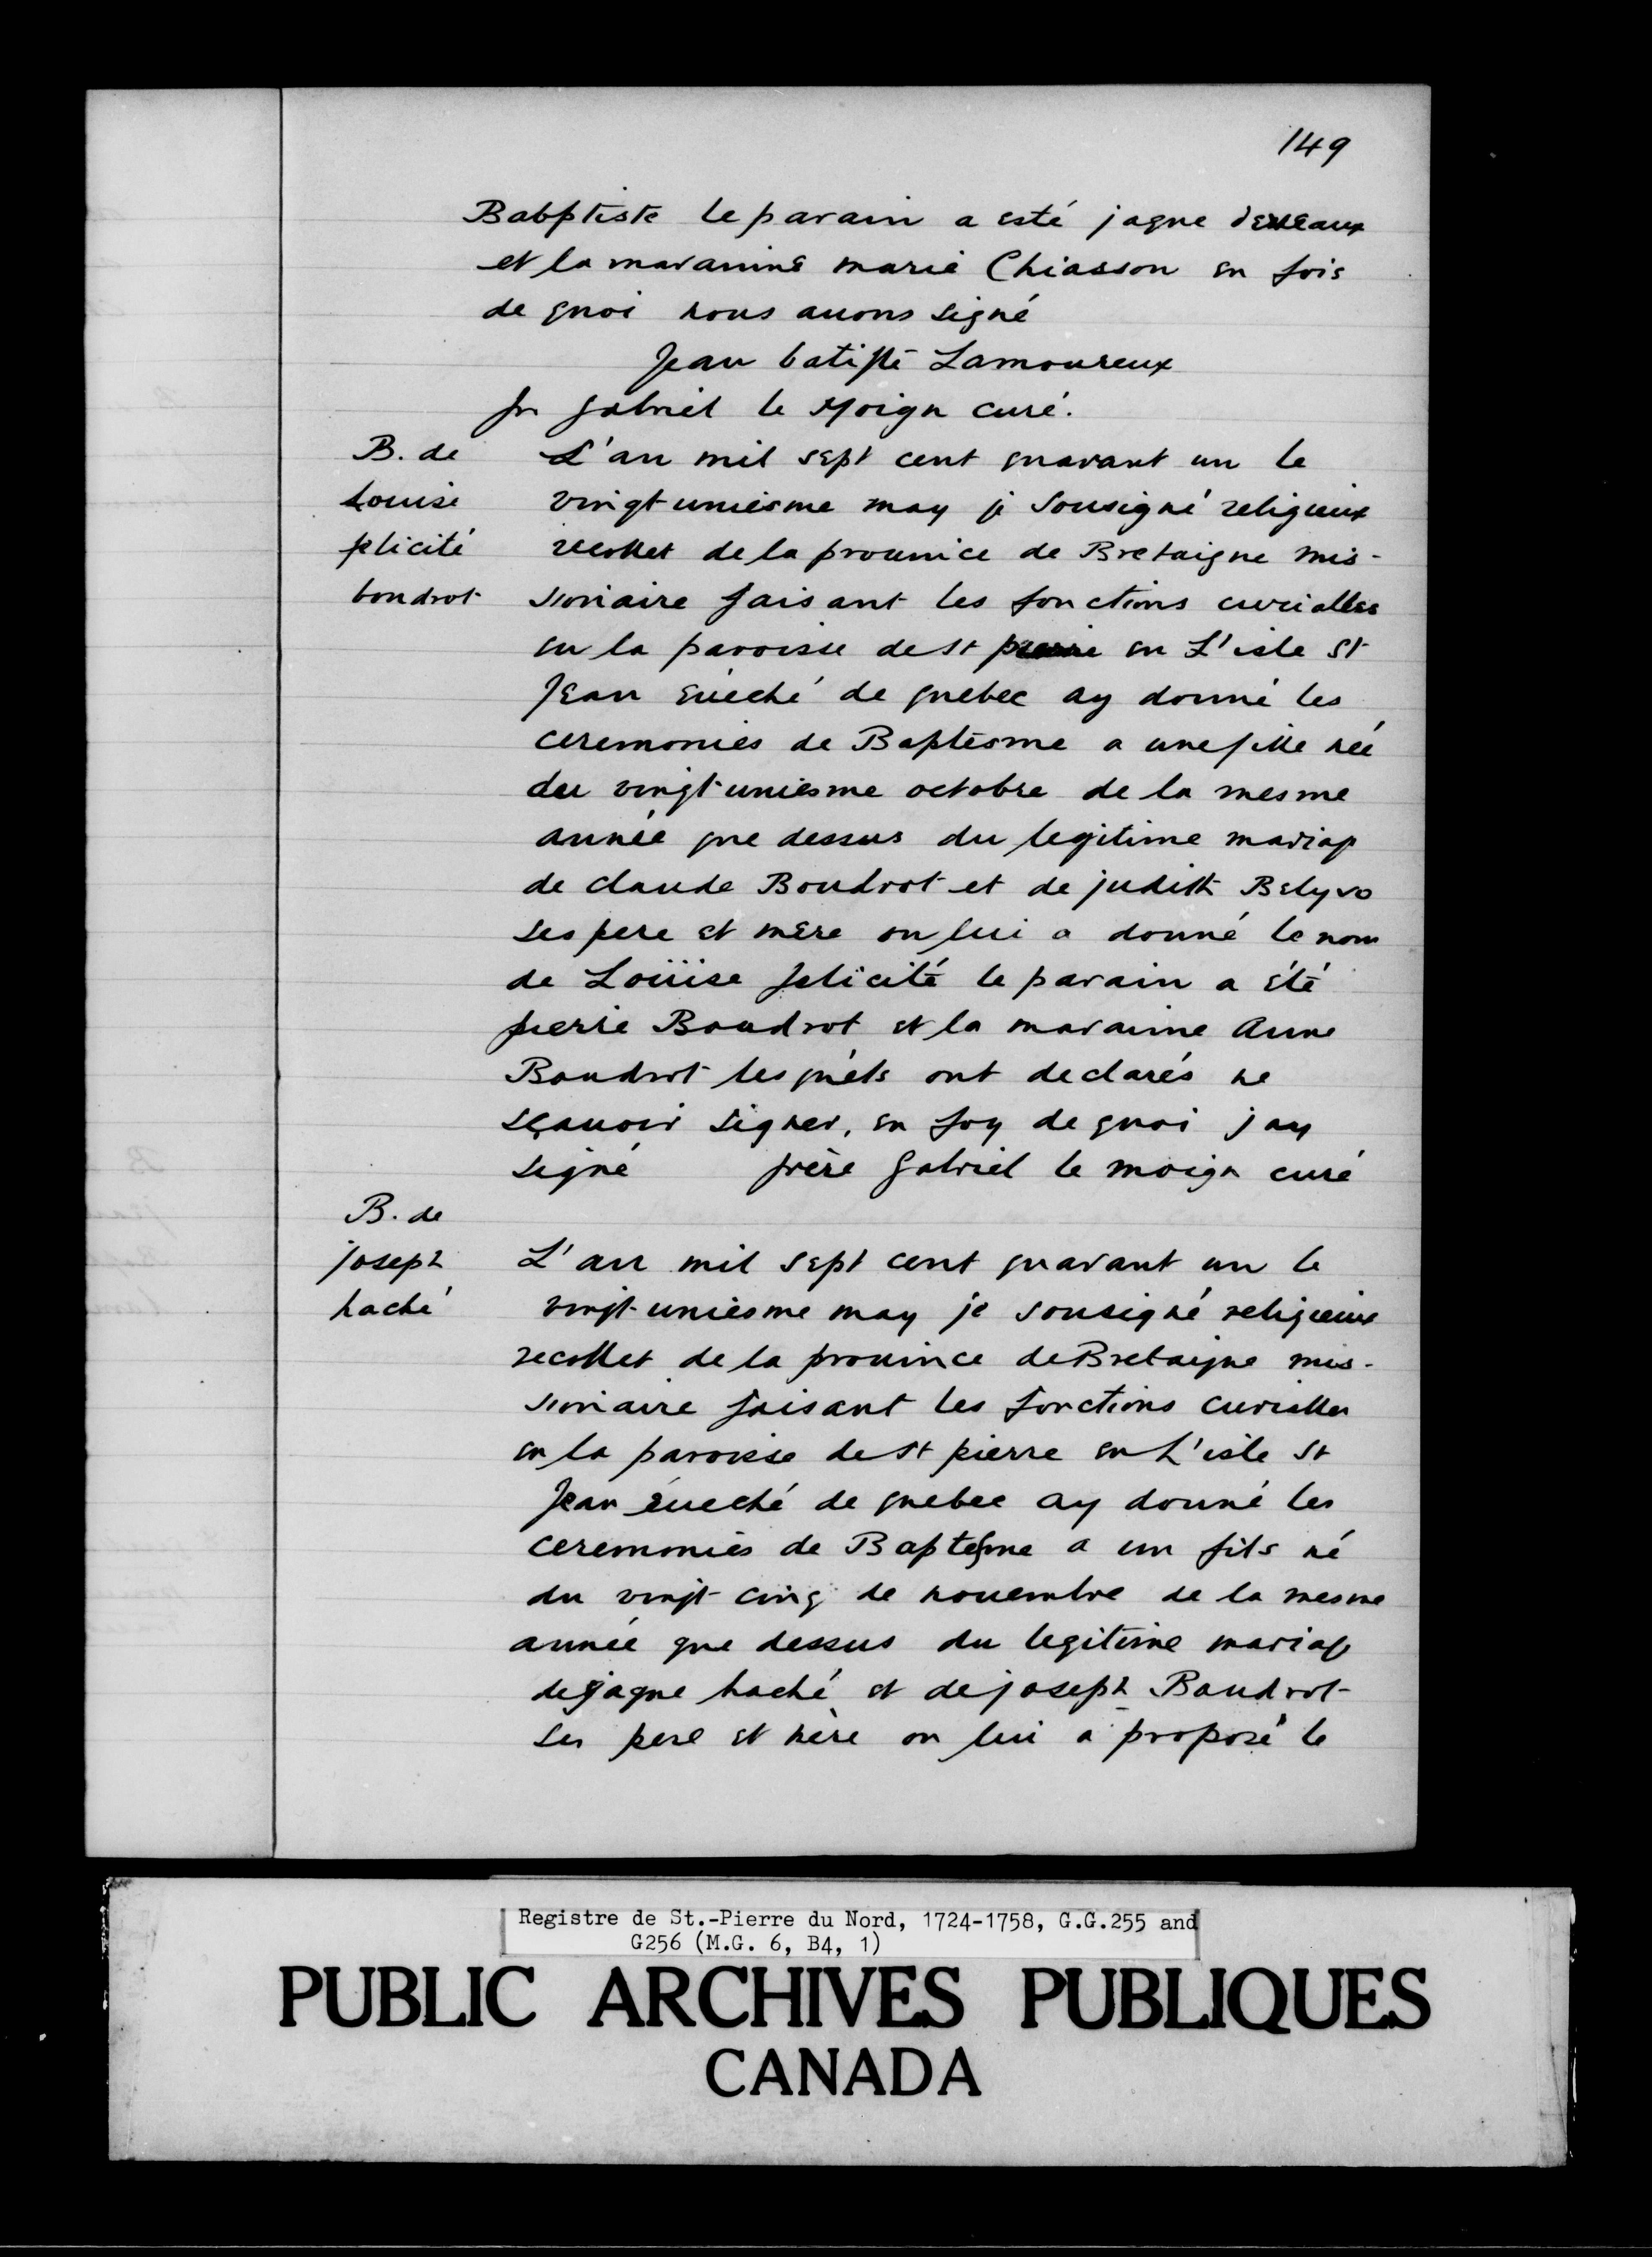 149
Babptiste le parain a esté jaque deveaux
et la maraine marie Chiasson en fois
de quoi nous auons signé
Jean batiste Lamoureux
fr gabriel le Moign curé.
B. de
Louise
felicité
boudrot
L'an mil sept cent quarant un le
vingt uniesme may je sousigné religieux
recollet de la prouince de Bretaigne mis-
sionaire faisant les fonctions curialles
en la paroisse de st pierre en L'isle st
Jean euéché de quebec ay donné les
ceremonies de Baptesme a une fille née
du vingt uniesme octobre de la mesme
année que dessus du legitime mariage
de claude Boudrot et de judith Belyvo
ses pere et mere on lui a donné le nom
de Loüise felicité le parain a été
pierre Boudrot et la maraine Anne
Boudrot lesquels ont declarés ne
sçauoir signer, en foy de quoi jay
signé frère Gabriel le moign curé
B. de
joseph
haché
L'an mil sept cent quarant un le
vingt uniesme may je sousigné religieux
recollet de la prouince de Bretaigne mis-
sionaire faisant les fonctions curialles
en la paroisse de st pierre en L'isle st
Jean éueché de quebec ay donné les
ceremonies de Baptesme a un fils né
du vingt cinq de nouembre de la mesme
année que dessus du legitime mariage
de jaque haché et de joseph Boudrot
ses pere et mère on lui a proposé le
Registre de St.-Pierre du Nord, 1724-1758, G.G.255 and
G256 (M.G. 6, B4, 1)
PUBLIC ARCHIVES PUBLIQUES
CANADA